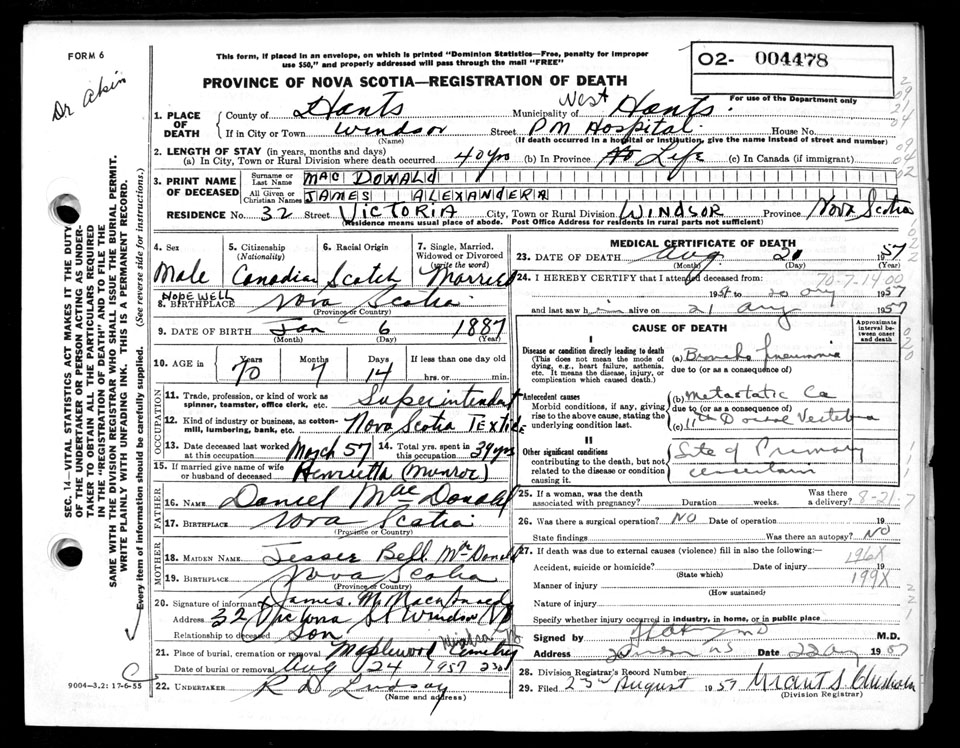 FORM 6
Dr Akin
This form, if placed in an envelope, on which is printed "Dominion Statistics—Free, penalty for improper
use $50," and properly addressed will pass through the mail "FREE"
PROVINCE OF NOVA SCOTIA—REGISTRATION OF DEATH
O2- 004478
For use of the Department only
1. PLACE OF DEATH
County of Hants Municipality of West Hants.
If in City or Town Windsor Street P M Hospital House No.
(Name) (If death occurred in a hospital or institution, give the name instead of street and number)
2. LENGTH OF STAY (in years, months and days)
(a) In City, Town or Rural Division where death occurred 40 yrs (b) In Province Life (c) In Canada (if immigrant)
3. PRINT NAME OF DECEASED
Surname or Last Name MAC DONALD
All Given or Christian Names JAMES ALEXANDER
RESIDENCE No. 32 Street VICTORIA City, Town or Rural Division WINDSOR Province NOVA SCOTIA
(Residence means usual place of abode. Post Office Address for residents in rural parts not sufficient)
4. Sex Male
5. Citizenship (Nationality) Canadian
6. Racial Origin Scotch
7. Single, Married, Widowed or Divorced (write the word) Married
8. BIRTHPLACE HOPEWELL Nova Scotia
(Province or Country)
9. DATE OF BIRTH Jan 6 1887
(Month) (Day) (Year)
10. AGE in Years 70 Months 7 Days 14 If less than one day old
hrs. or min.
OCCUPATION
11. Trade, profession, or kind of work as spinner, teamster, office clerk, etc. Superintendant
12. Kind of industry or business, as cotton-mill, lumbering, bank, etc. Nova Scotia Textile
13. Date deceased last worked at this occupation March 57 14. Total yrs. spent in this occupation 39 yrs
15. If married give name of wife or husband of deceased Henrietta (Munroe)
FATHER
16. NAME Daniel Mac Donald
17. BIRTHPLACE Nova Scotia
(Province or Country)
MOTHER
18. MAIDEN NAME Jesser Bell McDonald
19. BIRTHPLACE Nova Scotia
(Province or Country)
20. Signature of informant James M. MacDonald
Address 32 Victoria St Windsor NS
Relationship to deceased Son
21. Place of burial, cremation or removal Maplewood Cemetery Windsor NS
Date of burial or removal Aug 24 1957
22. UNDERTAKER R D Lindsay
(Name and address)
MEDICAL CERTIFICATE OF DEATH
23. DATE OF DEATH Aug 1957
(Month) (Day) (Year)
24. I HEREBY CERTIFY that I attended deceased from:
70-7-14 00
19 to 20 Aug 1957
and last saw him alive on 21 Aug 1957
CAUSE OF DEATH
Approximate interval between onset and death
I
Disease or condition directly leading to death
(This does not mean the mode of dying, e.g., heart failure, asthenia, etc. It means the disease, injury, or complication which caused death.
(a) Broncho Pneumonia
due to (or as a consequence of)
Antecedent causes
Morbid conditions, if any, giving rise to the above cause, stating the underlying condition last.
(b) Metastatic Ca
due to (or as a consequence of)
(c) 11th Dorsal Vertebra
II
Other significant conditions
contributing to the death, but not related to the disease or condition causing it.
Site of Primary
uncertain
25. If a woman, was the death associated with pregnancy? Duration weeks. Was there a delivery?
8-21-7
26. Was there a surgical operation? NO Date of operation 19
State findings Was there an autopsy? NO
27. If death was due to external causes (violence) fill in also the following:—
Accident, suicide or homicide? Date of injury 19
(State which)
196X
199X
Manner of injury
(How sustained)
Nature of injury
Specify whether injury occurred in industry, in home, or in public place
Signed by M.D.
Address Windsor NS Date 22 Aug 1957
28. Division Registrar's Record Number
29. Filed August 1957 Grant S Chisholm
(Division Registrar)
SEC. 14—VITAL STATISTICS ACT MAKES IT THE DUTY
OF THE UNDERTAKER OR PERSON ACTING AS UNDER-
TAKER TO OBTAIN ALL THE PARTICULARS REQUIRED
IN THE "REGISTRATION OF DEATH" AND TO FILE THE
SAME WITH THE DIVISION REGISTRAR WHO SHALL ISSUE THE BURIAL PERMIT.
WRITE PLAINLY WITH UNFADING INK. THIS IS A PERMANENT RECORD.
Every item of information should be carefully supplied. (See reverse side for instructions.)
9004—3.2: 17-6-55